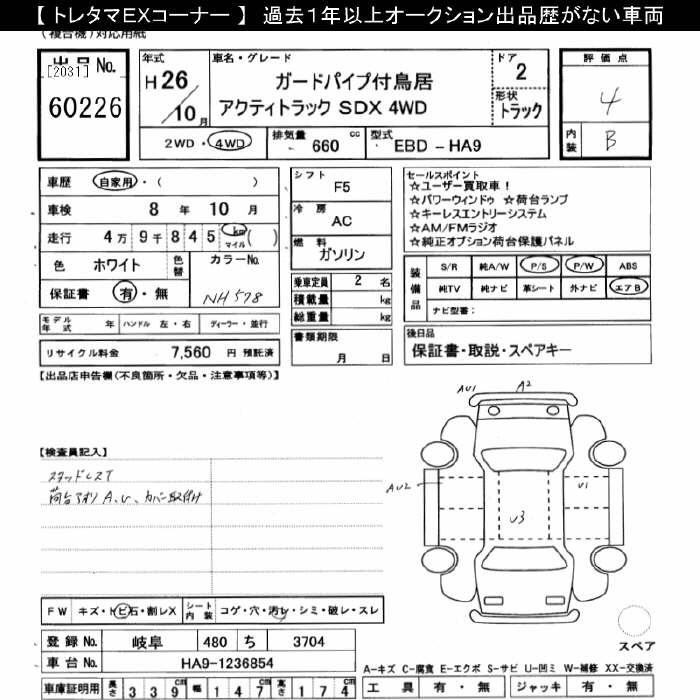 【 トレタマEXコーナー 】 過去1年以上オークション出品歴がない車両
(複合機)対応用紙
出品No.
[2031]
60226
年式
H 26/10月
車名・グレード
ガードパイプ付鳥居
アクティトラック SDX 4WD
ドア
2
形状
トラック
評価点
4
内装 B
2WD ・ 4WD
排気量 660 cc
型式 EBD - HA9
車歴 自家用 ・ ( )
車検 8 年 10 月
走行 4万 9千 8 4 5 km マイル ( )
色 ホワイト 色替 カラーNo.
保証書 有 ・ 無 NH578
シフト F5
冷房 AC
燃料 ガソリン
乗車定員 2 名
積載量 kg
総重量 kg
書類期限
月 日
セールスポイント
☆ユーザー買取車!
☆パワーウィンドゥ ☆荷台ランプ
☆キーレスエントリーシステム
☆AM/FMラジオ
☆純正オプション荷台保護パネル
装備品
S/R 純A/W P/S P/W ABS
純TV 純ナビ 革シート 外ナビ エアB
ナビ型番:
後日品
保証書・取説・スペアキー
モデル年式 年 ハンドル 左・右 ディーラー・並行
リサイクル料金 7,560 円 預託済
【出品店申告欄(不良箇所・欠品・注意事項等)】
【検査員記入】
スタッドレスT
荷台アオリ A、U、カバー取付け
AU1 A2
AU2
U1
U3
スペア
FW キズ・トビ石・割レX シート内装 コゲ・穴・汚レ・シミ・破レ・スレ
登録No. 岐阜 480 ち 3704
車台No. HA9-1236854
車庫証明用 長さ 3 3 9 cm 幅 1 4 7 cm 高さ 1 7 4 cm
A-キズ C-腐食 E-エクボ S-サビ U-凹ミ W-補修 XX-交換済
工具 有 ・ 無 ジャッキ 有 ・ 無